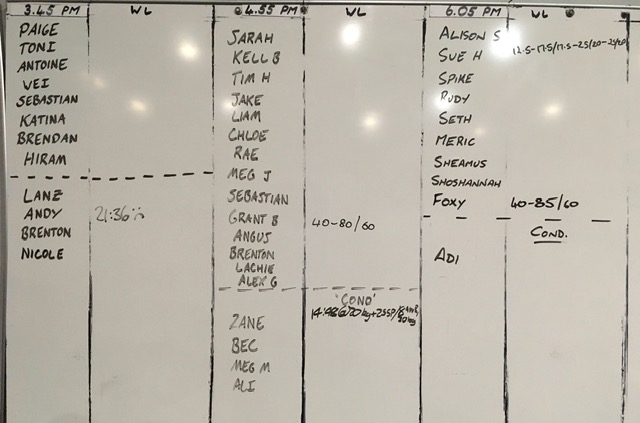 3.45 PM WL
PAIGE
TONI
ANTOINE
VEI
SEBASTIAN
KATINA
BRENDAN
HIRAM
LANZ
ANDY 21:36
BRENTON
NICOLE
4.55 PM WL
SARAH
KELL B
TIM H
JAKE
LIAM
CHLOE
RAE
MEG J
SEBASTIAN
GRANT B 40-80/60
ANGUS
BRENTON
LACHIE
ALEX G
'COND'
ZANE 14:48@20kg+25SP/
BEC
MEG M
ALI
6.05 PM WL
ALISON S
SUE H 12.5-17.5/17.5-25/20-
SPIKE
RUDY
SETH
MERIC
SHEAMUS
SHOSHANNAH
FOXY 40-85/60
COND.
ADI